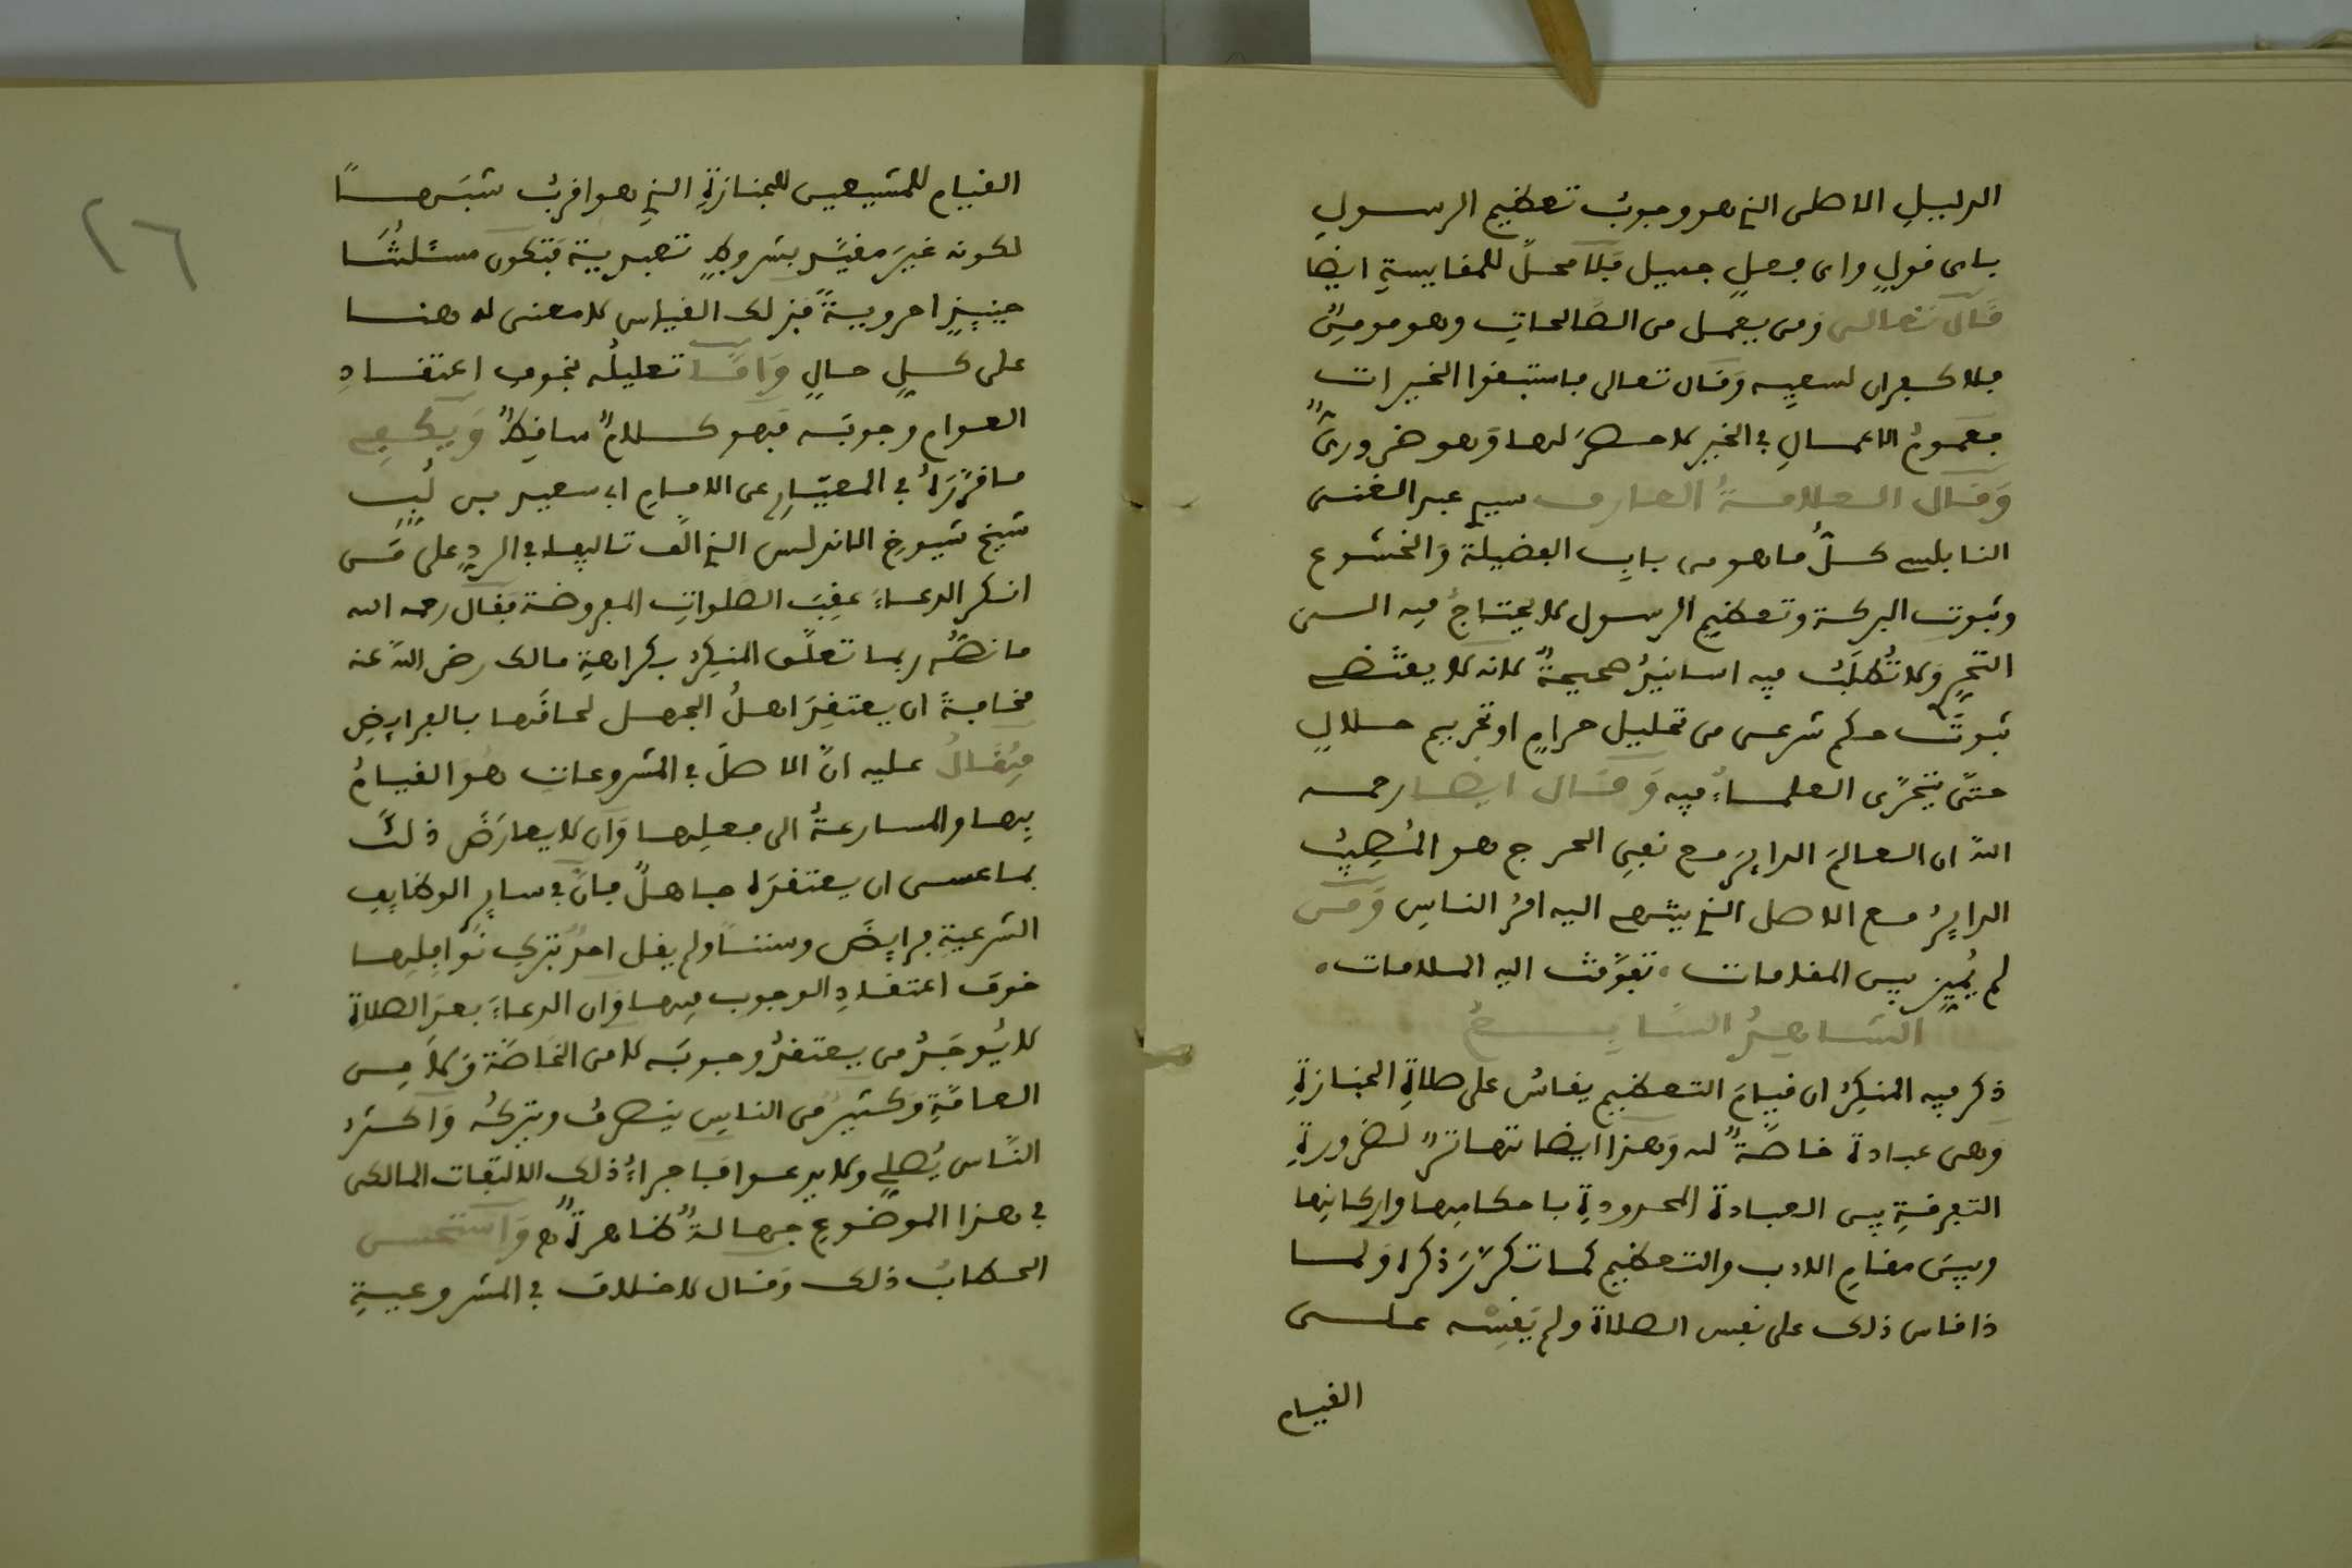 الدليلِ الاصلى الذے هو وجوبُ تعظيم الرسولِ
باى قولٍ واى فعلٍ جميل فَلا محلَّ للمقايسةِ ايضا
قَال تعالى ومن يعمل من الصَّالحاتِ وهو مومنٌ
فلا كفران لسعيه وَقال تعالى فاستبقوا الخيرات
فعمومُ الاعمالِ في الخير لا حصرَ لها وَهو ضرورىٌّ
وَقال العلامةُ العارف سيدے عبد الغنى
النابلسے كلُّ ما هو من بابِ الفضيلة وَالخشوع
وثبوت البركة وتعظيم الرسول لا يحتاجُ فيه الى
التحرِّے وَلا تُطلَبُ فيه اسانيدُ صحيحةٌ لانه لا يقتضے
ثبوتَ حكم شرعى من تحليل حرامٍ او تحريم حلالٍ
حتَّى يتحرَّى العلماءُ فيه وَقال ايضا رحمه
اللّه ان العالمَ الدايرَ مع نفيِ الحرج هو المُصِيبُ
الدايرُ مع الاصل الذے ينتهے اليه امرُ الناسِ وَمن
لم يُميِّز بين المقامات، تفوَّقت اليه الملامات،
الشاهدُ السَّابِعُ
ذكر فيه المنكِرُ ان قيامَ التعظيم يقاسُ على صلاةِ الجنازةِ
وَهى عبادة خاصَّةٌ له وَهذا ايضا تهاترٌ لضرورةِ
التفرقةِ بين العبادة المحدودةِ باحكامِها واركانِها
وبينَ مقامِ الادب والتعظيم كما تكرَّرَ ذكره وَلما
ذا قاس ذلك على نفس الصلاة ولم يَقِسْه على
القيام
القيام للمشيعين للجنازةِ الذے هو اقربُ شبَهًا
لكونه غيرَ مقيَّد بشروطٍ تعبدية فتكون مسئلتُنا
حينيِذٍ احرويةً فذلك القياس لا معنى له هنا
على كلِّ حالٍ وَامَّا تعليلُه بخوف اعتقادِ
العوام وجوبَه فَهو كلامٌ ساقِطٌ وَيكفِے
ما قرَّرَهُ في المعيَارِ عن الامامِ ابى سعيد بن لُبٍّ
شيخ شيوخ الاندلس الذے الَّف تاليفا في الردِّ على مَن
انكر الدعاءَ عقِبَ الصلواتِ المفروضة فقال رحمه الله
ما نصُّه ربما تعلَّق المنكِرُ بكراهةِ مالك رضى اللّه عنه
مخافةَ ان يعتقِدَ اهلُ الجهل لحاقَها بالفرايِضِ
فيُقَالُ عليه انَّ الاصلَ في المشروعات هُوَ القيامُ
بها والمسارعةُ الى فعلِها وَان لا يعارَضَ ذلك
بما عسى ان يعتقدَه جاهلٌ فانَّ في ساير الوظايِفِ
الشرعيةِ فرايِضَ وسننًا ولم يقل احدٌ بتركِ نَوافِلِها
خوفَ اعتقادِ الوجوب فيها وَان الدعاءَ بعدَ الصلاة
لا يُوجَدُ من يعتقدُ وجوبَه لا من الخاصَّة وَلا مِن
العامَّةِ وَكثيرٌ من الناسِ ينصرفُ ويتركُه وَاكثرُ
النَّاس يُصلِے ولا يدعوا فاجراءُ ذلك الالتفات المالكى
في هذا الموضوعِ جهالةٌ ظاهرةٌ ه وَاستحسن
الحطابُ ذلك وَقال لا خلافَ في المشروعيةِ
٢٦